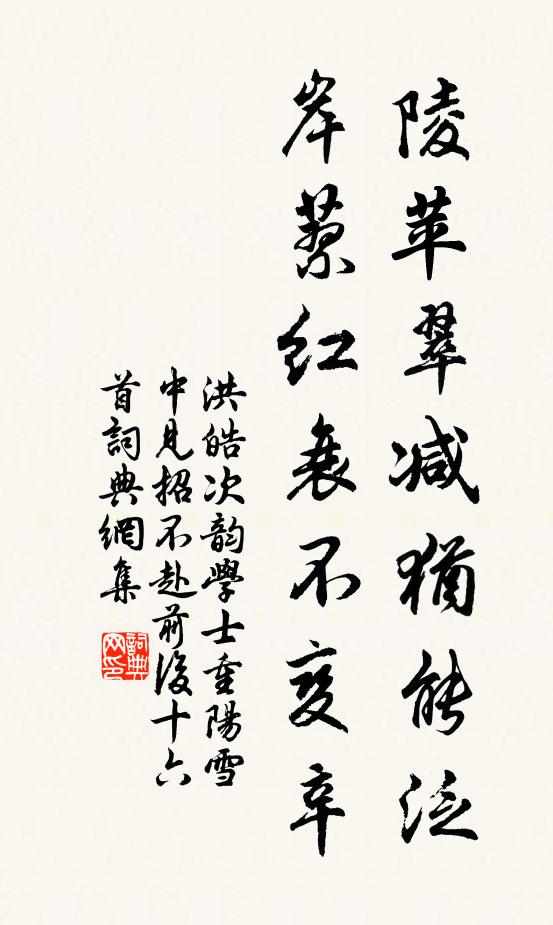 陵苹翠减猶能泛
岸蓼紅衰不變辛
洪皓次韵學士重陽雪
中見招不赴前後十六
首詞典網集
詞典网印